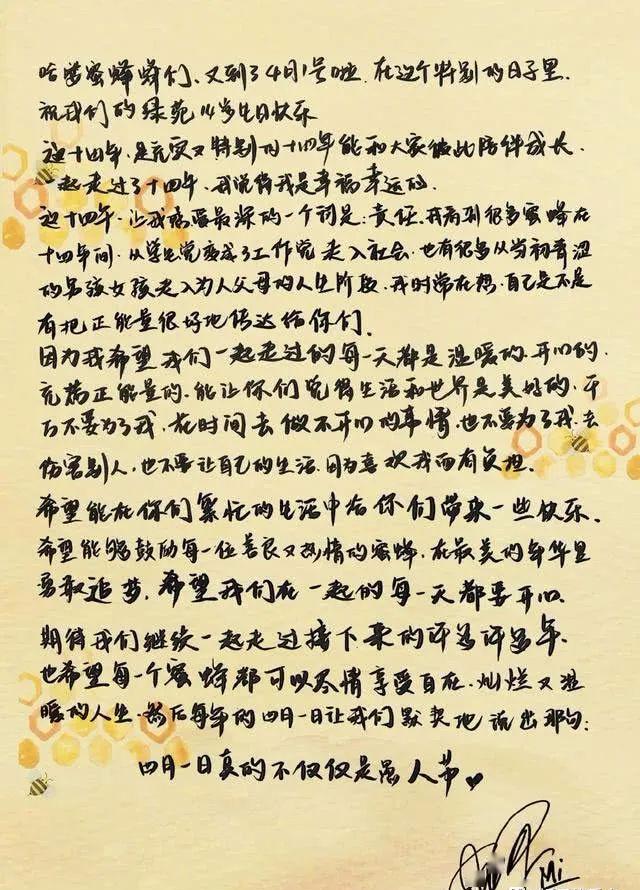 哈喽蜜蜂蜂们、又到了4月1号啦.在这个特别的日子里.
祝我们的绿苑14岁生日快乐
这十四年.是充实又特别的十四年能和大家彼此陪伴成长.
一起走过了十四年.我觉得我是幸福幸运的.
这十四年.让我感受最深的一个词是:责任.我看到很多蜜蜂在
十四年间.从学生党变成了工作党走入社会.也有很多从当初青涩
的男孩女孩走入为人父母的人生阶段.我时常在想.自己是不是
有把正能量很好地传达给你们.
因为我希望我们一起走过的每一天都是温暖的.开心的.
充满正能量的.能让你们觉得生活和世界是美好的.千
万不要为了我.花时间去做不开心的事情.也不要为了我去
伤害别人,也不要让自己的生活.因为喜欢我而有负担.
希望能在你们繁忙的生活中给你们带来一些快乐.
希望能够鼓励每一位善良又热情的蜜蜂.在最美的年华里
勇敢追梦.希望我们在一起的每一天都要开心.
期待我们继续一起走过接下来的许多许多年.
也希望每一个蜜蜂都可以尽情享受自在.灿烂又温
暖的人生.然后每年的四月一日让我们默契地说出那句:
四月一日真的不仅仅是愚人节♥
Mi